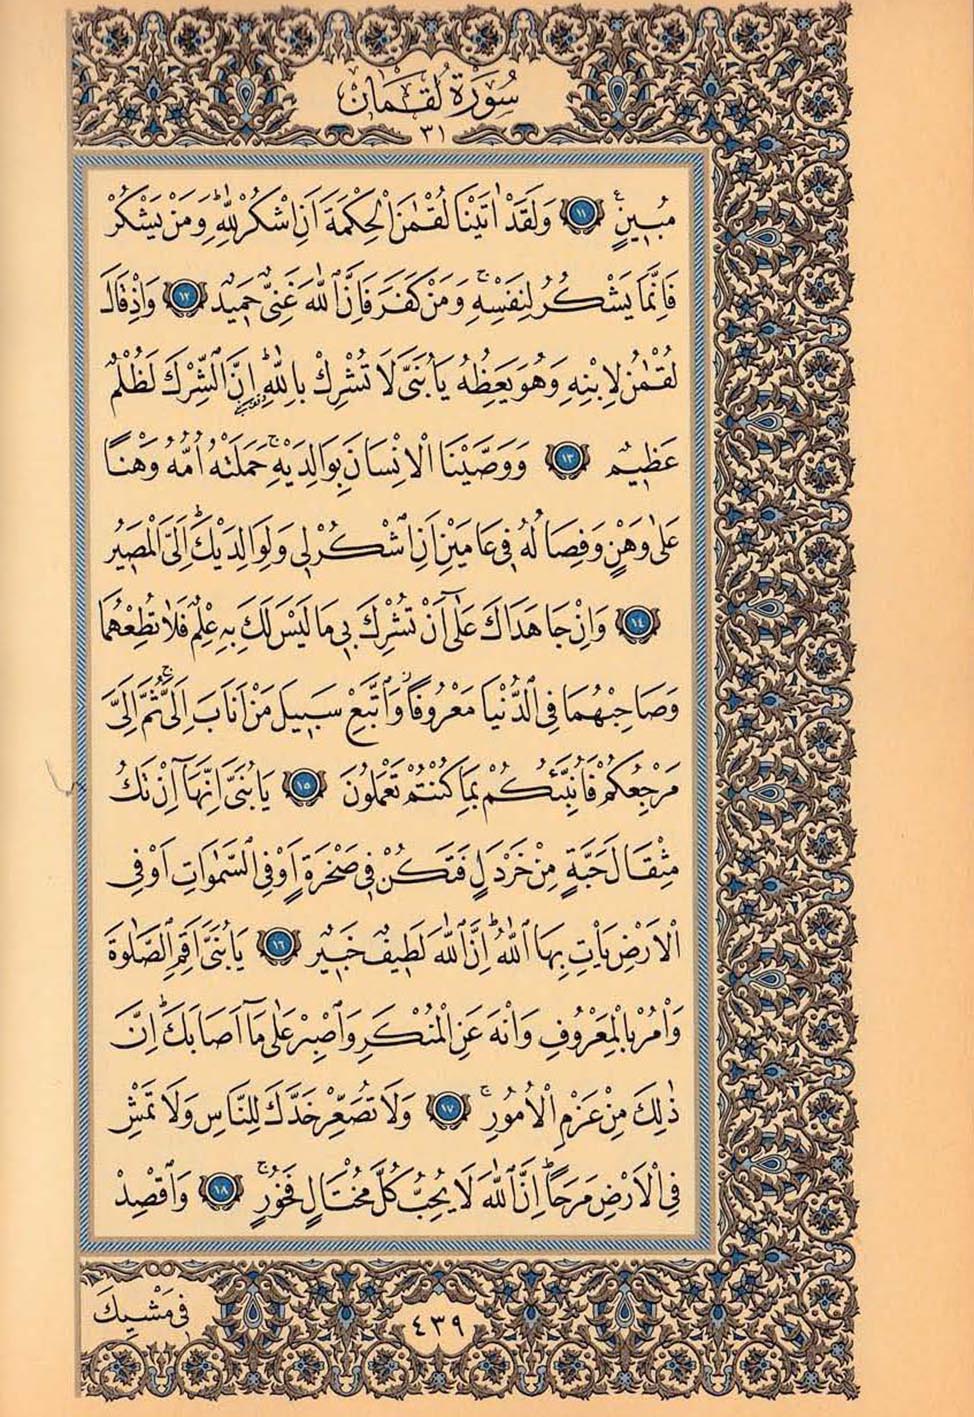 سُورَةُ لُقْمَانَ
٣١
مُبِينٍ ١١ وَلَقَدْ اٰتَيْنَا لُقْمٰنَ الْحِكْمَةَ اَنِ اشْكُرْ لِلّٰهِ وَمَنْ يَشْكُرْ
فَاِنَّمَا يَشْكُرُ لِنَفْسِهٖ وَمَنْ كَفَرَ فَاِنَّ اللّٰهَ غَنِىٌّ حَمِيدٌ ١٢ وَاِذْ قَالَ
لُقْمٰنُ لِابْنِهِ وَهُوَ يَعِظُهُ يَا بُنَىَّ لَا تُشْرِكْ بِاللّٰهِ اِنَّ الشِّرْكَ لَظُلْمٌ
عَظِيمٌ ١٣ وَوَصَّيْنَا الْاِنْسَانَ بِوَالِدَيْهِ حَمَلَتْهُ اُمُّهُ وَهْنًا
عَلٰى وَهْنٍ وَفِصَالُهُ فِى عَامَيْنِ اَنِ اشْكُرْ لِى وَلِوَالِدَيْكَ اِلَىَّ الْمَصِيرُ
١٤ وَاِنْ جَاهَدَاكَ عَلٰٓى اَنْ تُشْرِكَ بِى مَا لَيْسَ لَكَ بِهِ عِلْمٌ فَلَا تُطِعْهُمَا
وَصَاحِبْهُمَا فِى الدُّنْيَا مَعْرُوفًا وَاتَّبِعْ سَبِيلَ مَنْ اَنَابَ اِلَىَّ ثُمَّ اِلَىَّ
مَرْجِعُكُمْ فَاُنَبِّئُكُمْ بِمَا كُنْتُمْ تَعْمَلُونَ ١٥ يَا بُنَىَّ اِنَّهَٓا اِنْ تَكُ
مِثْقَالَ حَبَّةٍ مِنْ خَرْدَلٍ فَتَكُنْ فِى صَخْرَةٍ اَوْ فِى السَّمٰوَاتِ اَوْ فِى
الْاَرْضِ يَأْتِ بِهَا اللّٰهُ اِنَّ اللّٰهَ لَطِيفٌ خَبِيرٌ ١٦ يَا بُنَىَّ اَقِمِ الصَّلٰوةَ
وَأْمُرْ بِالْمَعْرُوفِ وَانْهَ عَنِ الْمُنْكَرِ وَاصْبِرْ عَلٰى مَٓا اَصَابَكَ اِنَّ
ذٰلِكَ مِنْ عَزْمِ الْاُمُورِ ١٧ وَلَا تُصَعِّرْ خَدَّكَ لِلنَّاسِ وَلَا تَمْشِ
فِى الْاَرْضِ مَرَحًا اِنَّ اللّٰهَ لَا يُحِبُّ كُلَّ مُخْتَالٍ فَخُورٍ ١٨ وَاقْصِدْ
فِى مَشْيِكَ
٤٣٩